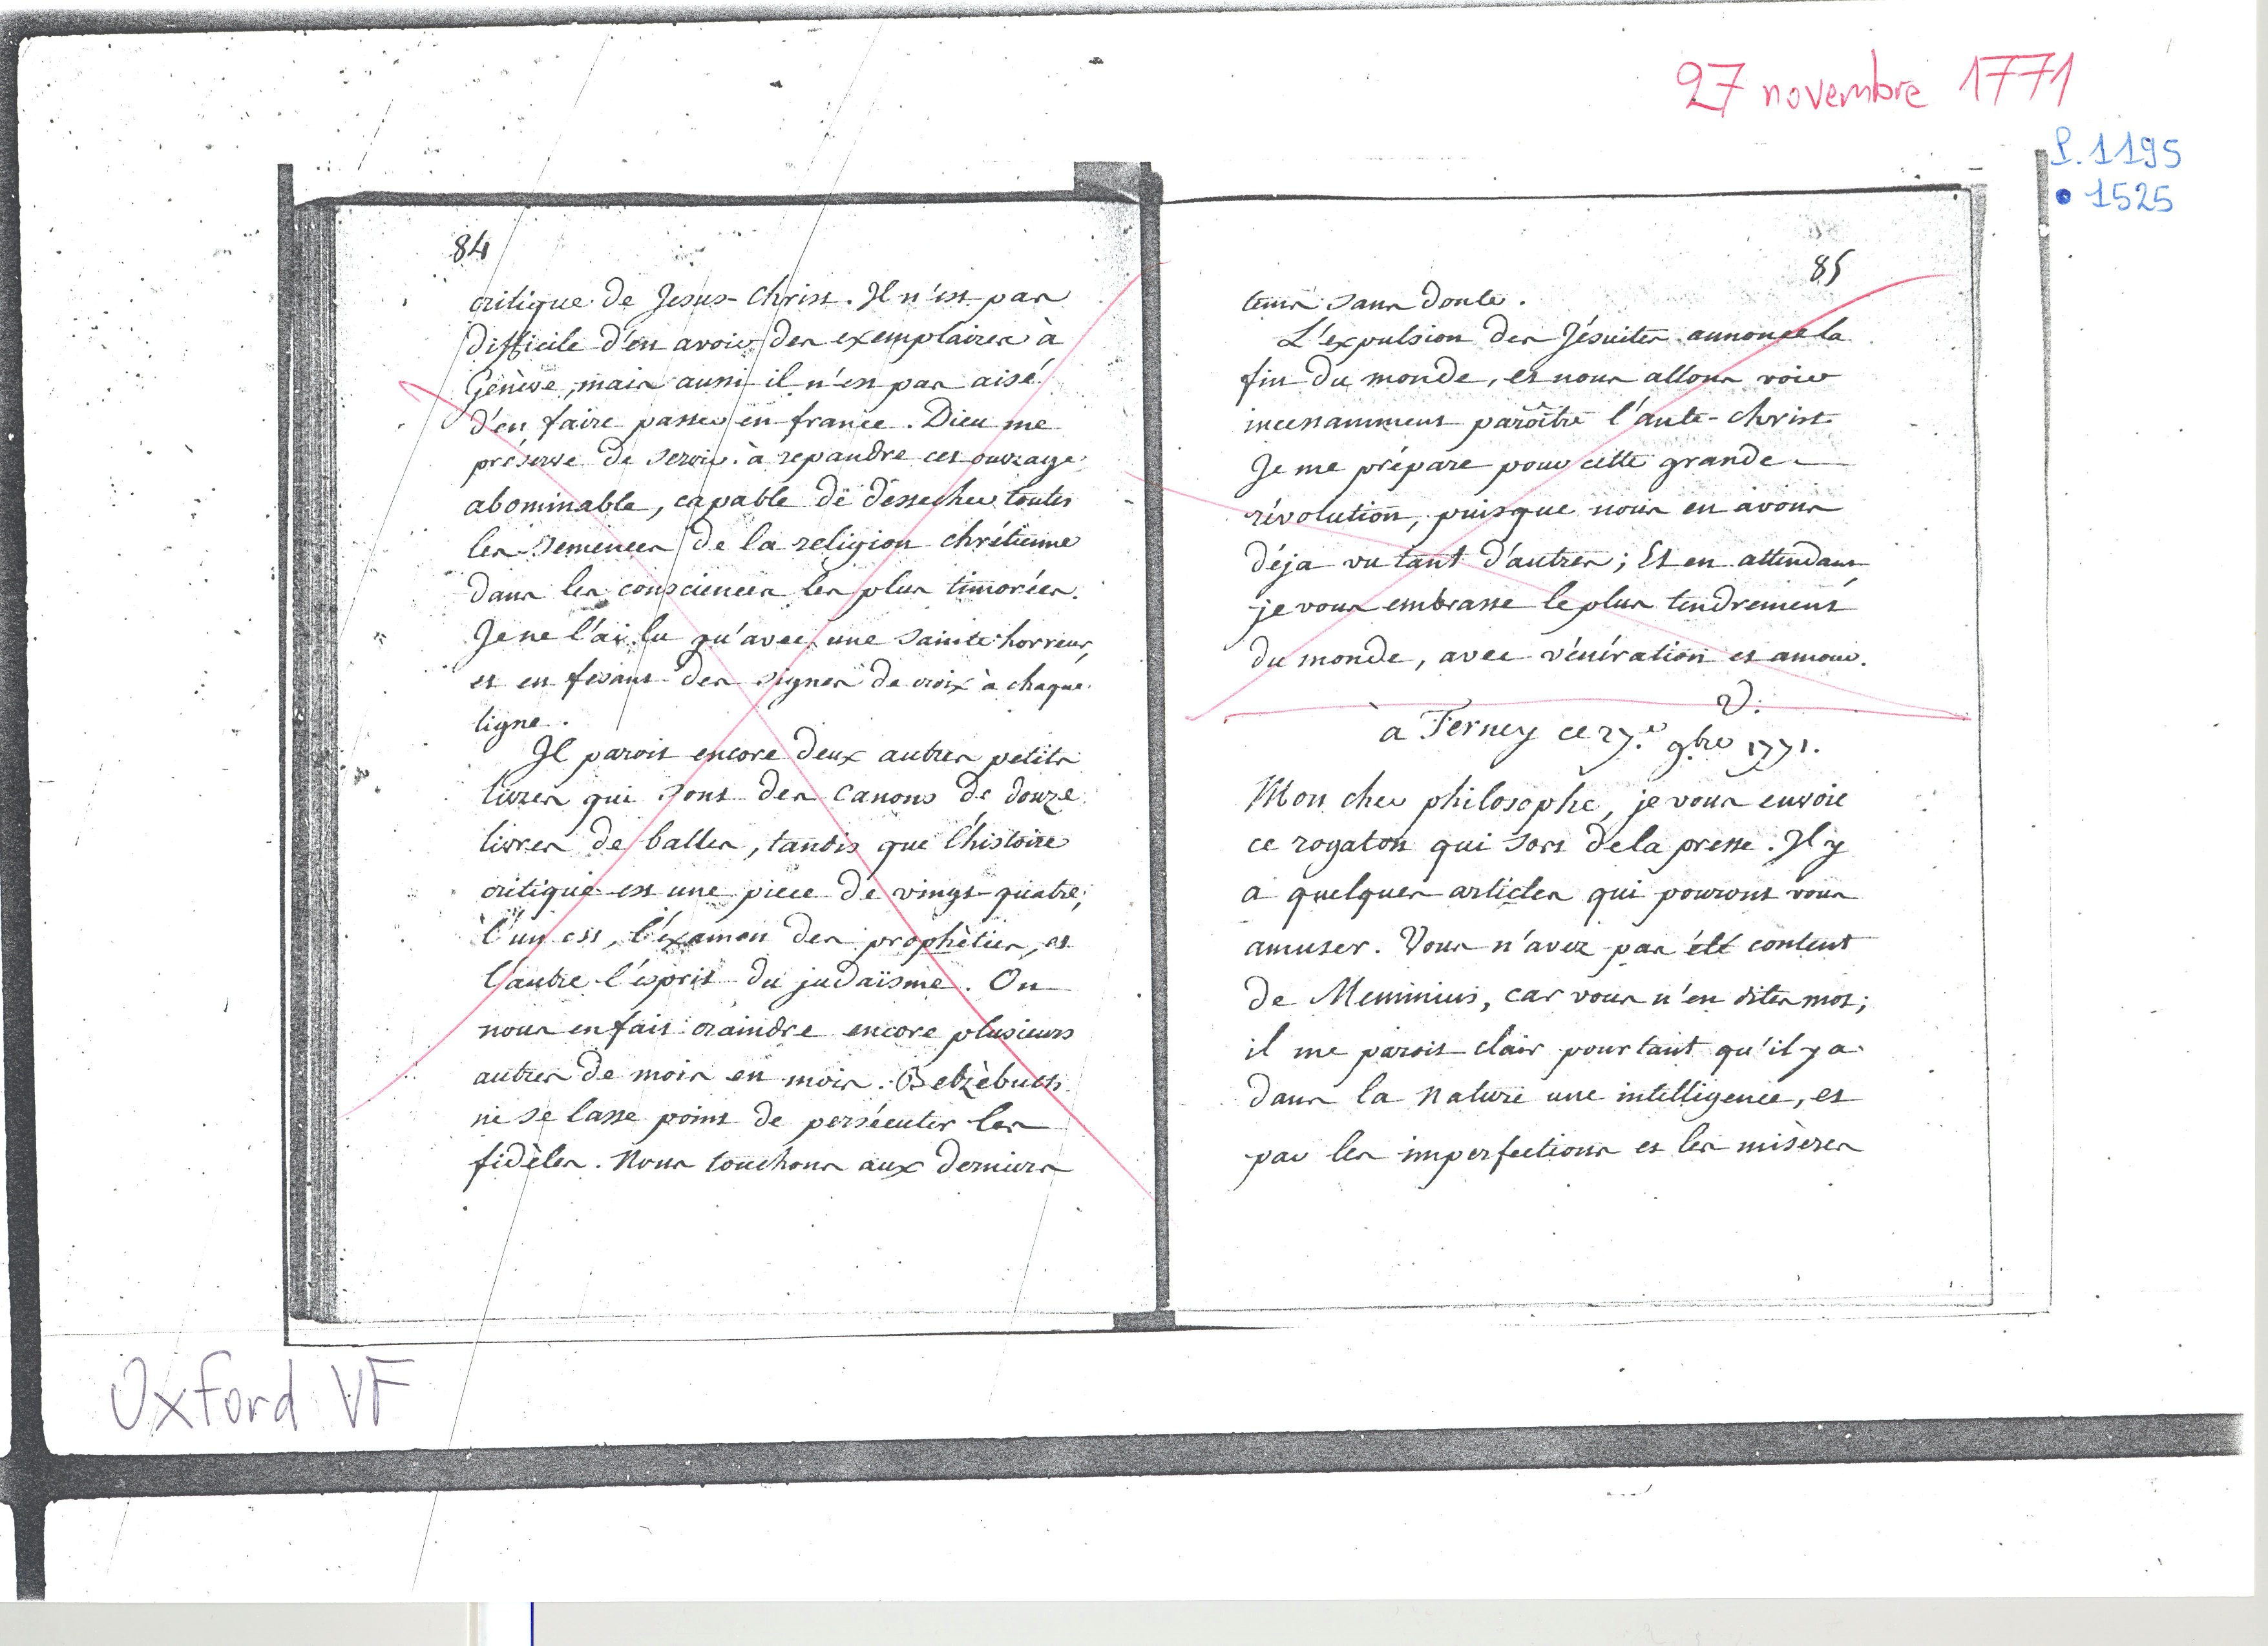 27 novembre 1771
P. 1195
• 1525
84
critique de Jesus-Christ. Il n'est pas
difficile d'en avoir des exemplaires à
Genève, mais aussi il n'est pas aisé
d'en faire passer en france. Dieu me
préserve de servir à repandre cet ouvrage
abominable, capable de dessecher toutes
les semences de la religion chrétienne
dans les consciences les plus timorées.
Je ne l'ai lu qu'avec une sainte horreur,
et en fesant des signes de croix à chaque
ligne.
Il paroit encore deux autres petits
livres qui sont des canons de douze
livres de balles, tandis que l'histoire
critique est une piece de vingt-quatre;
l'un est, l'examen des prophèties, et
l'autre l'esprit du judaïsme. On
nous en fait craindre encore plusieurs
autres de mois en mois. Belzèbuth
ne se lasse point de persécuter les
fidèles. Nous touchons aux derniers
85
tems sans doute.
L'expulsion des Jésuites annonce la
fin du monde, et nous allons voir
incessamment paroître l'ante-christ.
Je me prépare pour cette grande
révolution, puisque nous en avons
déja vu tant d'autres; Et en attendant
je vous embrasse le plus tendrement
du monde, avec vénération et amour.
V.
à Ferney ce 27.e 9.bre 1771.
Mon cher philosophe, je vous envoie
ce rogaton qui sort de la presse. Il y
a quelques articles qui pouront vous
amuser. Vous n'avez pas été content
de Memmius, car vous n'en dites mot;
il me paroit clair pourtant qu'il y a
dans la nature une intelligence, et
par les imperfections et les misères
Oxford VF